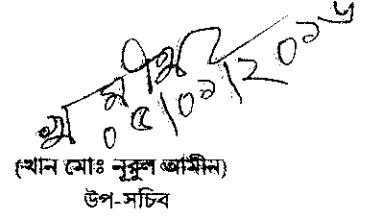 ০৫|০১|২০১৬
(খান মোঃ নূরুল আমীন)
উপ-সচিব